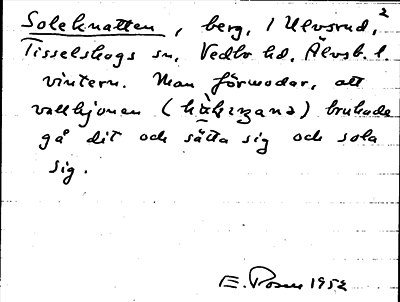 Soleknatten, berg, 1 Ulvsrud, 2
Tisselskogs sn, Vedbo hd, Älvsb. l.
vintern. Man förmodar, att
vallhjonen ( ) brukade
gå dit och sätta sig och sola
sig.
E. Rosen 1952